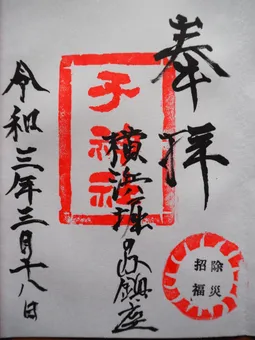 奉拝
子神社
横浜堀ノ内鎮座
令和三年三月十八日
除災
招福